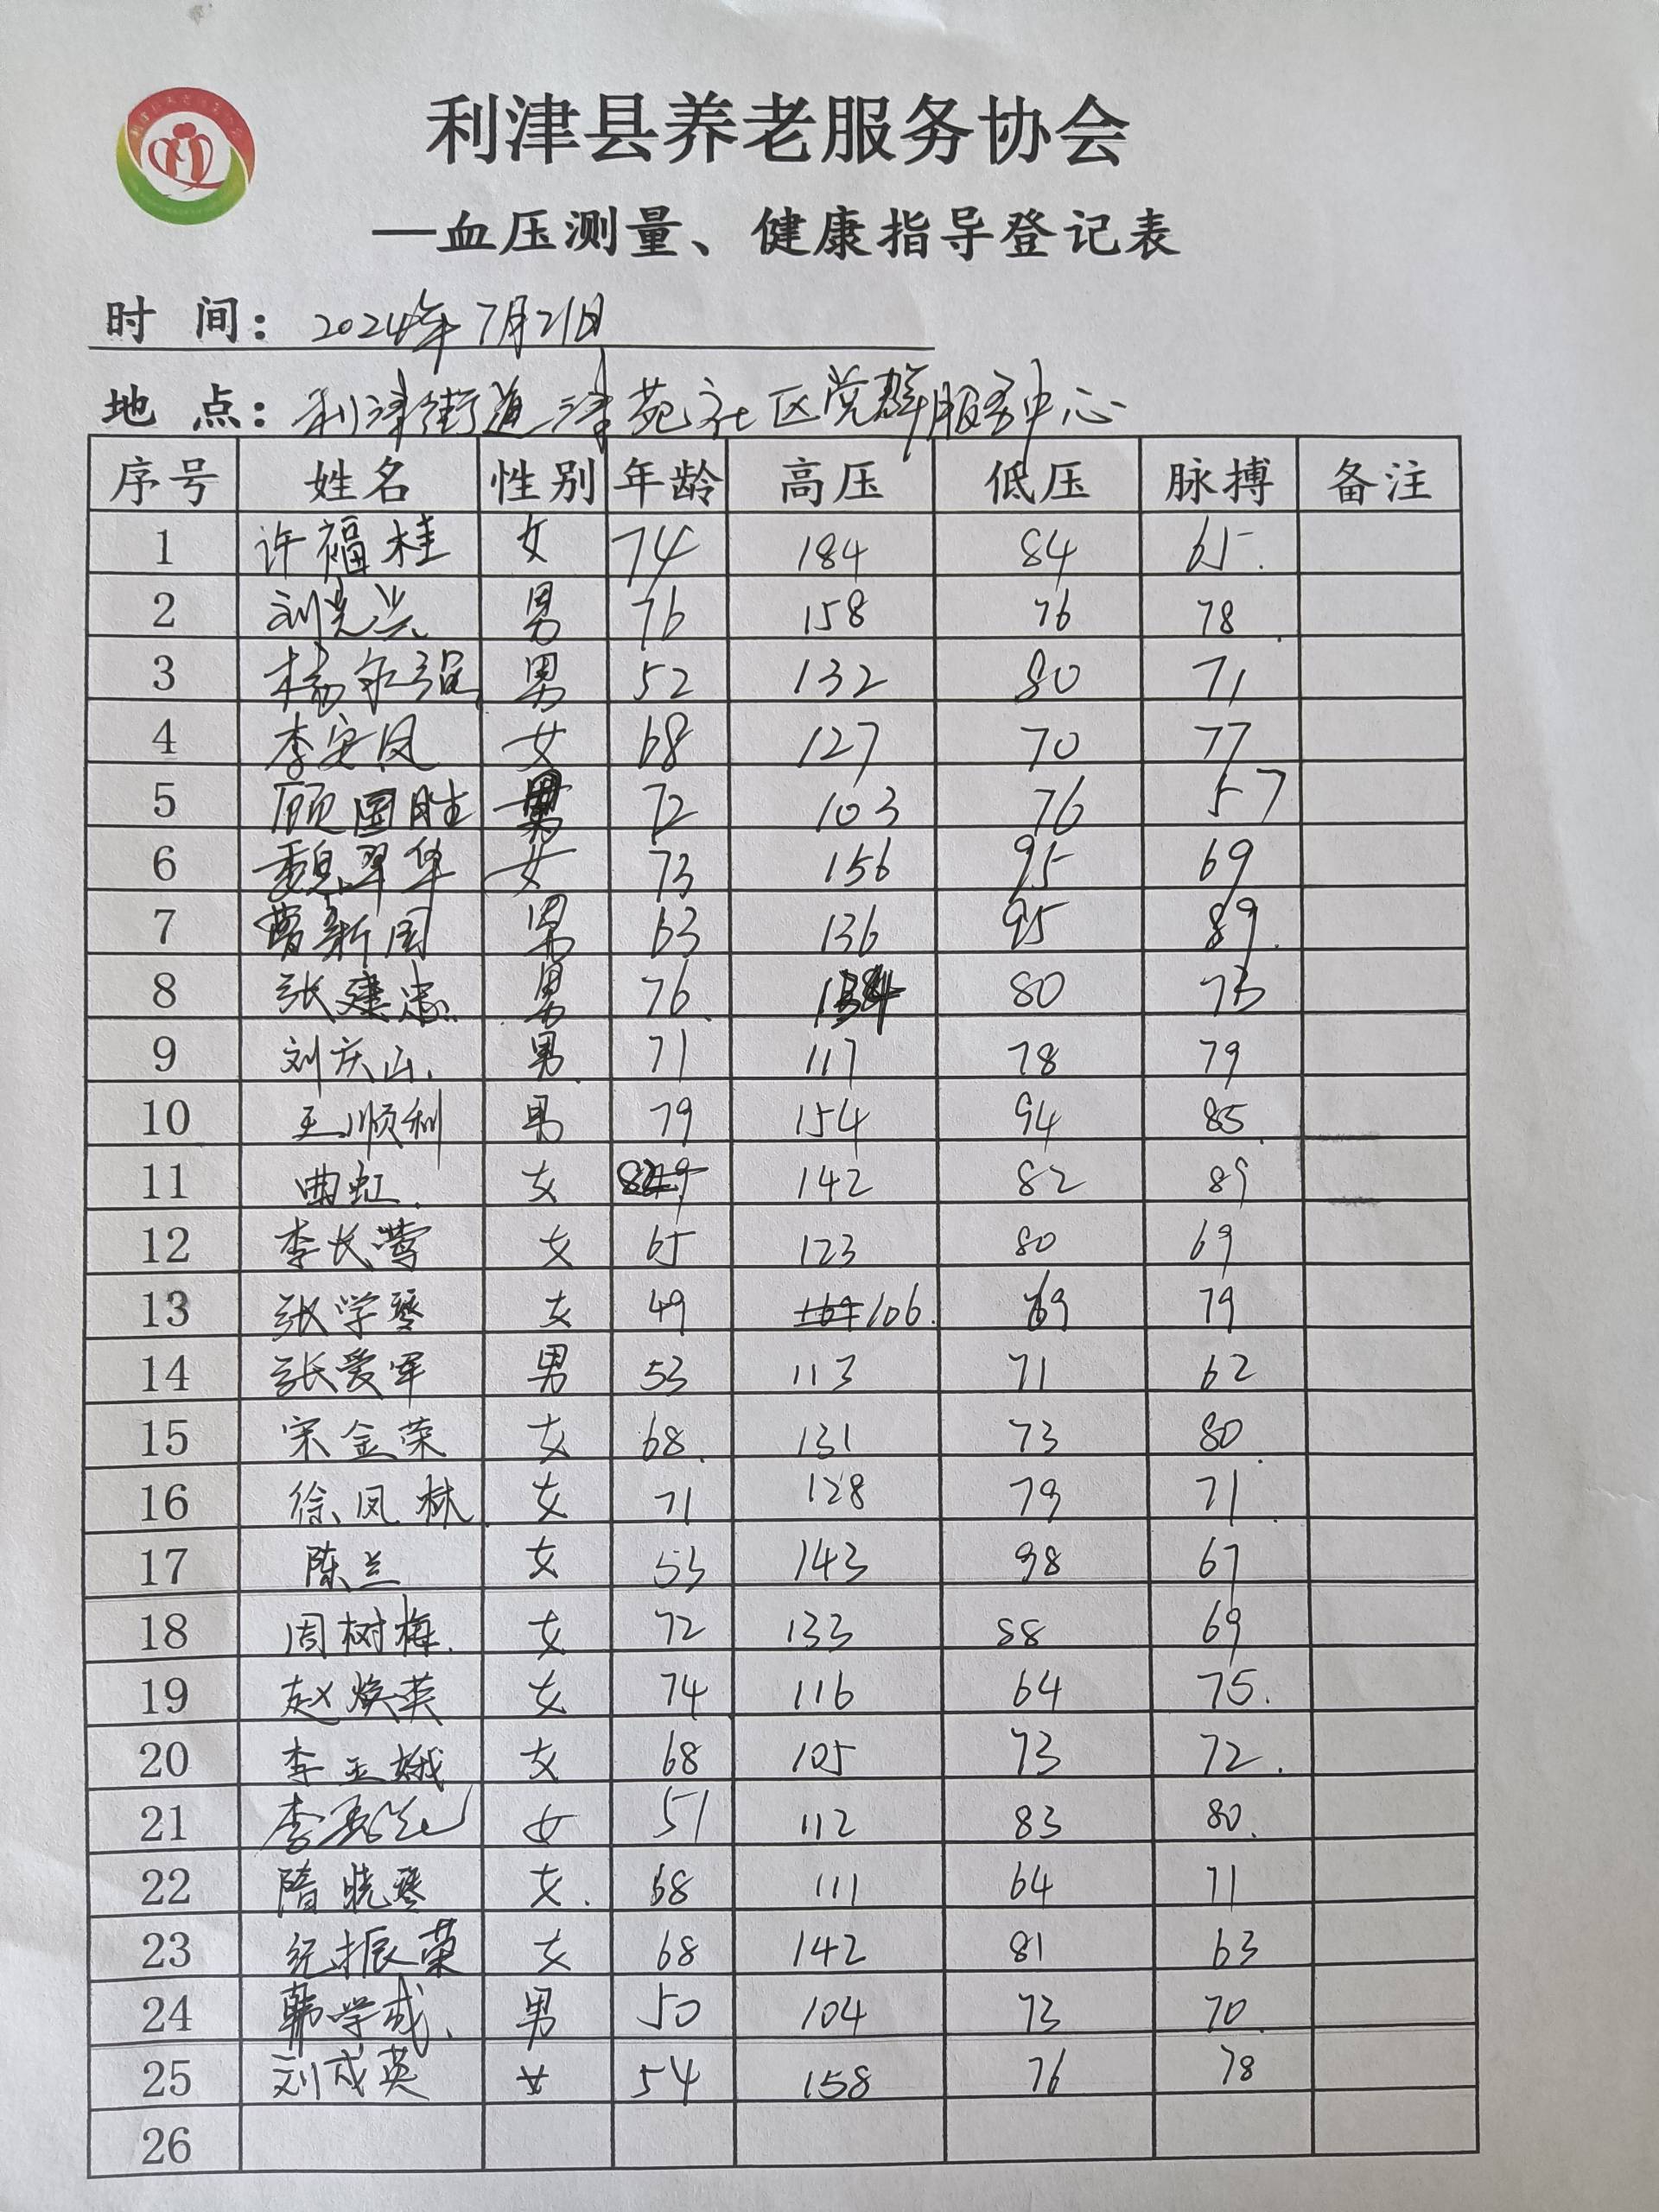 利津县养老服务协会
—血压测量、健康指导登记表
时 间：2024年7月21日
地 点：利津街道津苑社区党群服务中心
序号 姓名 性别 年龄 高压 低压 脉搏 备注
1 许福桂 女 74 184 84 65.
2 刘光兴 男 76 158 76 78
3 杨永强 男 52 132 80 71
4 李安凤 女 68 127 70 77
5 顾国胜 男 72 103 76 57
6 魏翠华 女 73 156 95 69
7 曹新国 男 63 136 95 89.
8 张建忠 男 76 80 73
9 刘庆山. 男 71 117 78 79
10 王顺利 男 79 154 94 85
11 曲虹. 女 142 82 89
12 李长莺 女 65 123 80 69
13 张学琴 女 49 106. 69 79
14 张爱军 男 53 113 71 62
15 宋金荣 女 68 131 73 80
16 徐凤林 女 71 128 79 71
17 陈兰 女 53 143 98 67
18 周树梅. 女 72 133 88 69
19 赵焕英 女 74 116 64 75.
20 李玉娥 女 68 105 73 72.
21 李 女 51 112 83 80.
22 隋晓琴 女. 68 111 64 71
23 纪振荣 女 68 142 81 63
24 韩学成 男 50 104 73 70
25 刘成英 女 54 158 76 78
26